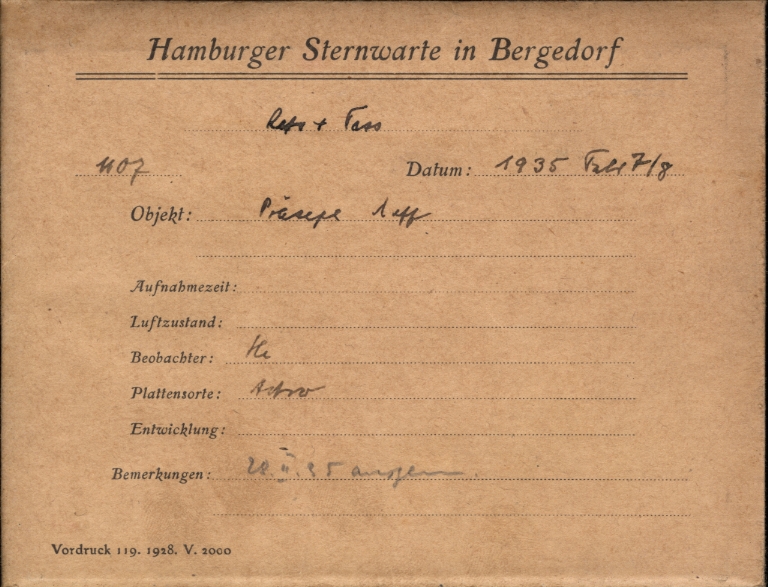 Hamburger Sternwarte in Bergedorf
+
1107 Datum: 1935 Febr 7/8
Objekt: Präsepe
Aufnahmezeit:
Luftzustand:
Beobachter: He
Plattensorte: Astro
Entwicklung:
Bemerkungen: 28.II.35
Vordruck 119. 1928. V. 2000